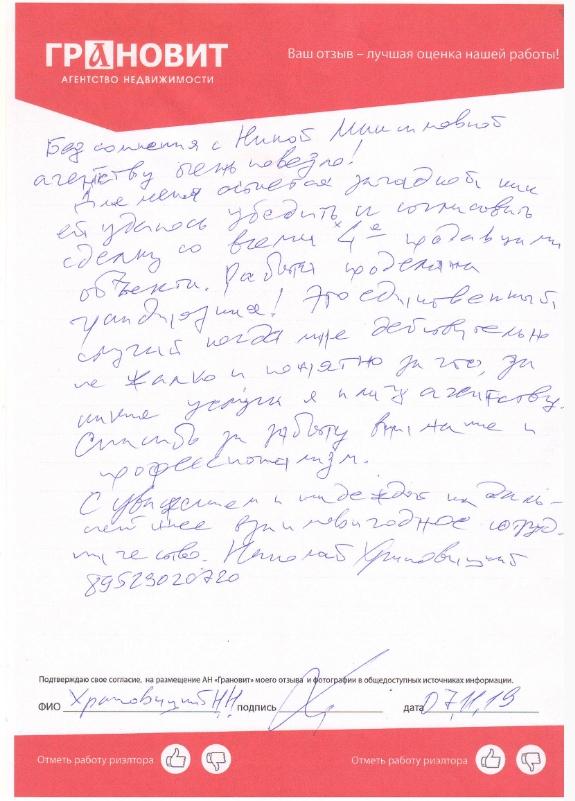 ГРАНОВИТ
АГЕНТСТВО НЕДВИЖИМОСТИ
Ваш отзыв – лучшая оценка нашей работы!
Без сомнения с Ниной
агентству очень повезло!
Для меня остается загадкой, как
ей удалось убедить и согласовать
сделку со всеми 4е продавцами
объекта. Работа проделана
грандиозная! Это единственный
случай когда мне действительно
не жалко и понятно за что, за
какие услуги я плачу агентству.
Спасибо за заботу внимание и
профессионализм.
С уважением и надеждой на даль-
нейшее взаимовыгодное сотруд-
ничество. Николай Храповицкий
89523020720
Подтверждаю свое согласие, на размещение АН «Грановит» моего отзыва и фотографии в общедоступных источниках информации.
ФИО Храповицкий Н.Н. подпись дата 07,11,19
Отметь работу риэлтора Отметь работу риэлтора